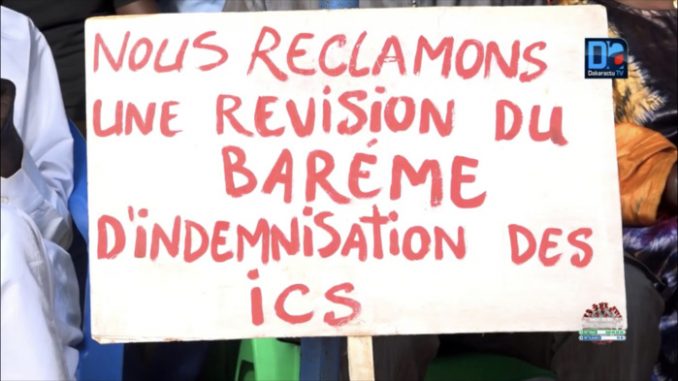 NOUS RECLAMONS
UNE REVISION DU
BARÉME
D'INDEMNISATION DES
iCS
Dakaractu TV